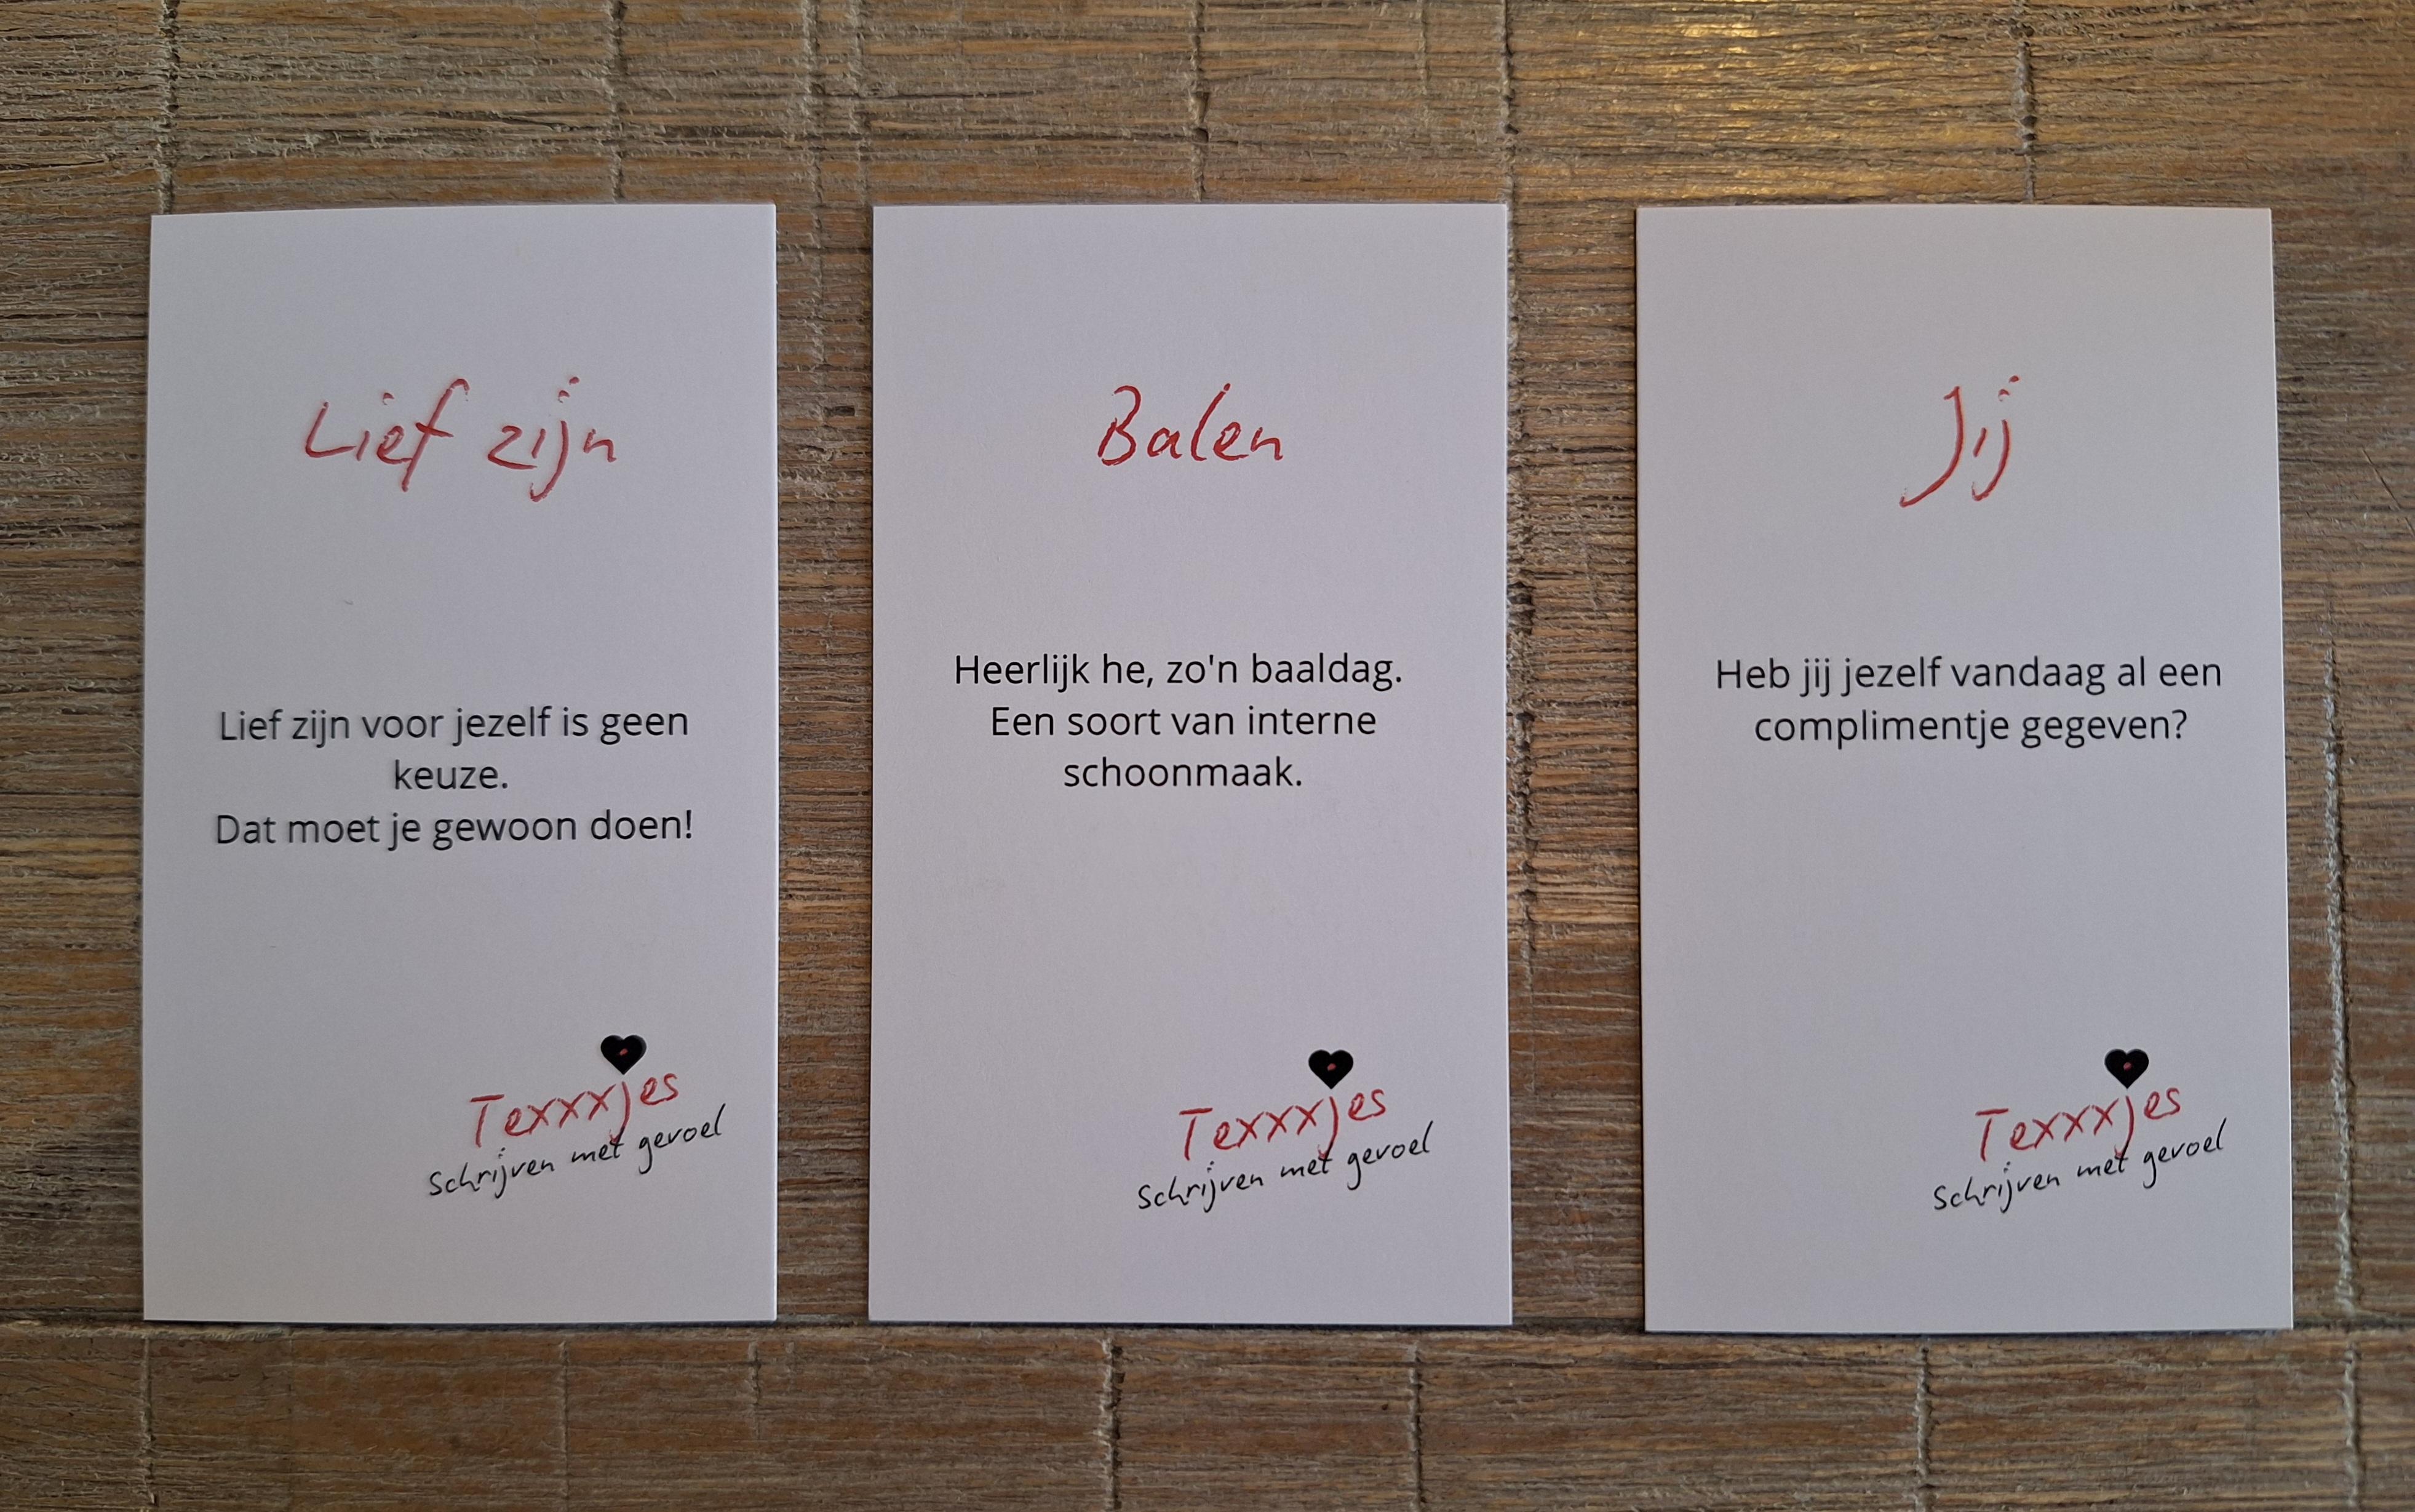 Lief zijn
Lief zijn voor jezelf is geen
keuze.
Dat moet je gewoon doen!
Texxxjes
Schrijven met gevoel
Balen
Heerlijk he, zo'n baaldag.
Een soort van interne
schoonmaak.
Texxxjes
Schrijven met gevoel
Jij
Heb jij jezelf vandaag al een
complimentje gegeven?
Texxxjes
Schrijven met gevoel